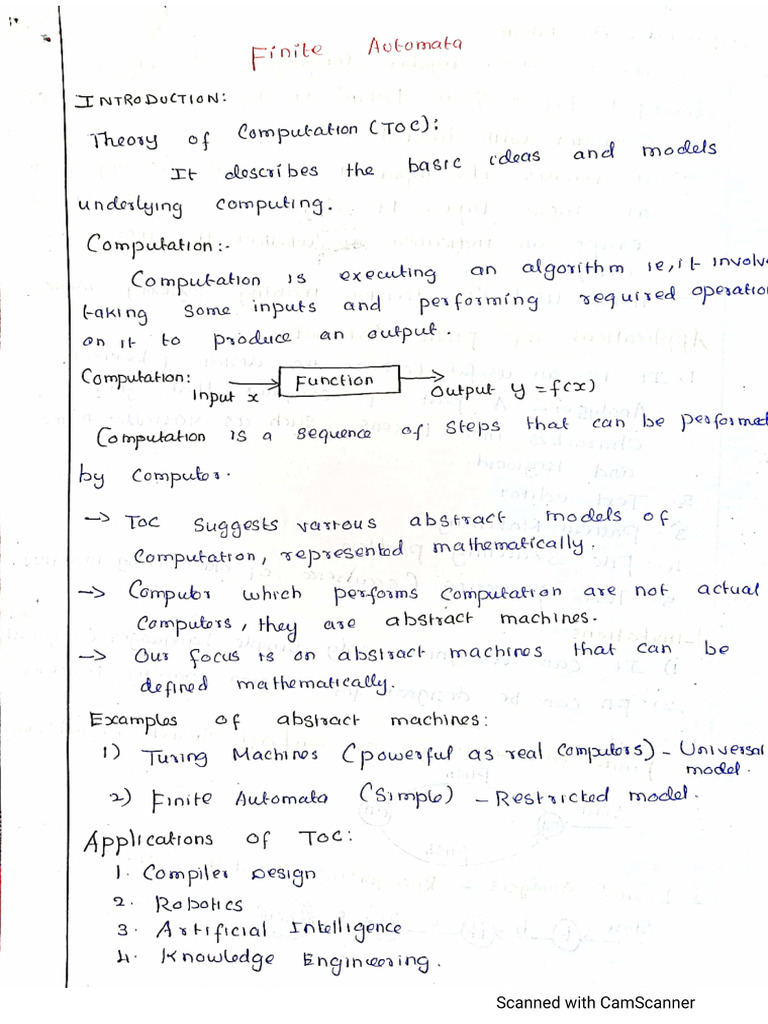 Finite Automata
INTRODUCTION:
Theory of Computation (TOC):
It describes the basic ideas and models
underlying computing.
Computation:-
Computation is executing an algorithm ie, it involve
taking some inputs and performing required operation
on it to produce an output.
Computation: Input x Function Output y = f(x)
Computation is a sequence of steps that can be performed
by Computor.
→ TOC Suggests various abstract models of
Computation, represented mathematically.
→ Computor which performs Computation are not actual
Computors, they are abstract machines.
→ Our focus is on abstract machines that can be
defined mathematically.
Examples of abstract machines:
1) Turing Machines (powerful as real Computors) - Universal
model.
2) Finite Automata (Simple) - Restricted model.
Applications of TOC:
1. Compiler Design
2. Robotics
3. Artificial Intelligence
4. Knowledge Engineering.
Scanned with CamScanner